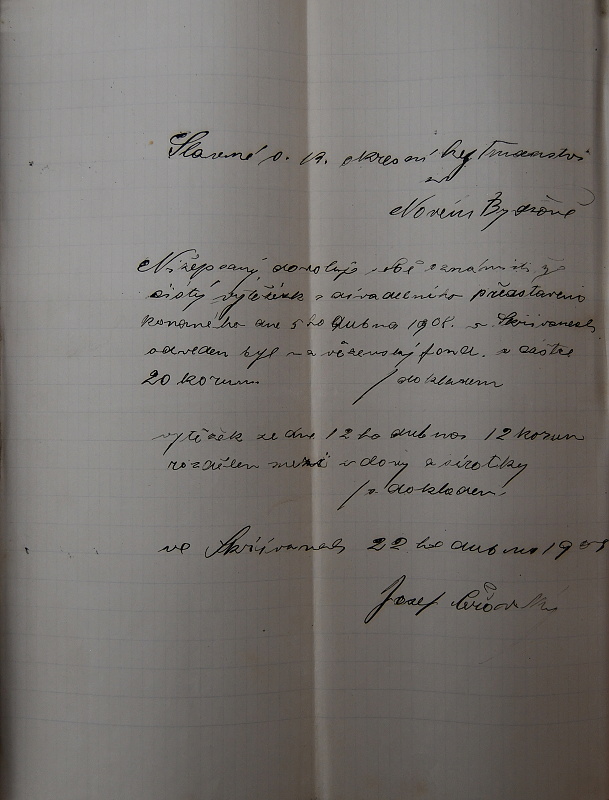 Slavné c. k. okresní hejtmanství
v
Novém Bydžově
Nížepsaný dovoluje sobě oznámiti že
čistý výtěžek z divadelního představení
konaného dne 5ho dubna 1908. v Skřivanech
odveden byl na věženský fond. v částce
20 korun. / dokladem
výtěžek ze dne 12ho dubna 12 korun
rozdělen mezi vdovy a sirotky
/ s dokladem.
ve Skřivanech 22ho dubna 19
Josef